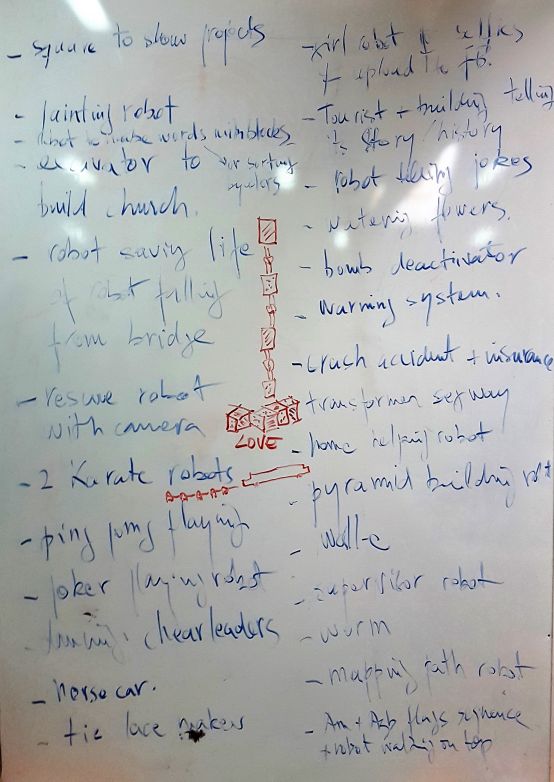 - square to show projects
- painting robot
- Robot to make words with blocks
- excavator to
or sorting
build church.
- robot saving life
of robot falling
from bridge
- rescue robot
with camera
- 2 Karate robots
- ping pong playing
- joker playing robot
cheerleaders
- horse car.
- tie lace maker
LOVE
- girl robot selfies
& upload to fb.
- Tourist + building telling
its story/history
- robot telling jokes
- watering flowers.
- bomb deactivator
- warning system.
- crash accident + insurance
- transformer segway
- home helping robot
- pyramid building robot
- wall-e
- supervisor robot
- worm
- mapping path robot
- Am + Azb flags
+ robot walking on top